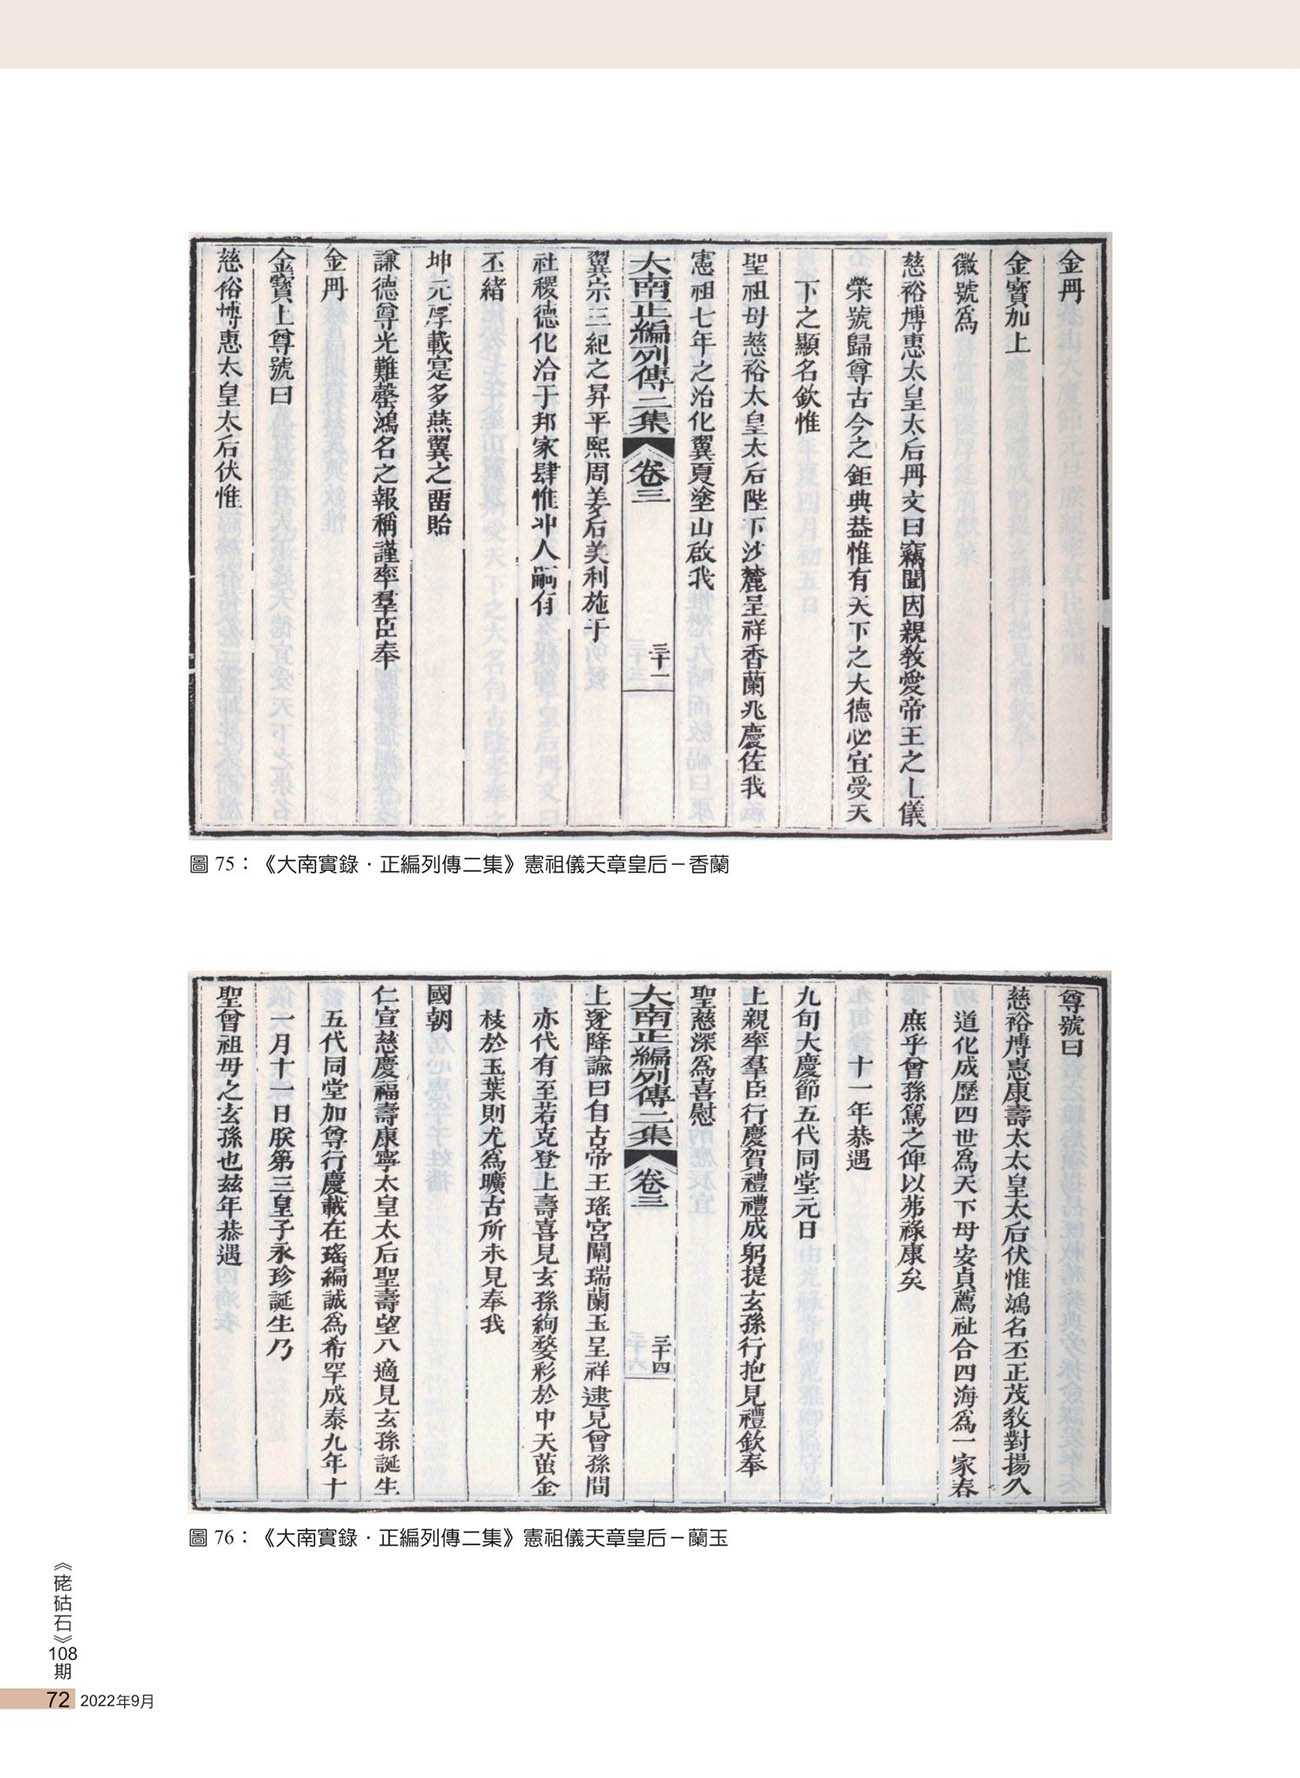 金冊
金寶加上
徽號爲
慈裕博惠太皇太后冊文曰竊聞因親敎愛帝王之上儀
榮號歸尊古今之鉅典蓋惟有天下之大德必宜受天
下之顯名欽惟
聖祖母慈裕太皇太后陛下沙麓呈祥香蘭兆慶佐我
憲祖七年之治化翼夏塗山啟我
大南正編列傳二集 卷三 三十一
翼宗三紀之昇平熙周姜后美利施于
社稷德化洽于邦家肆惟冲人嗣有
丕緒
坤元厚載寔多燕翼之畱貽
謙德尊光難罄鴻名之報稱謹率羣臣奉
金冊
金寶上尊號曰
慈裕博惠太皇太后伏惟
圖 75：《大南實錄．正編列傳二集》憲祖儀天章皇后－香蘭
尊號曰
慈裕博惠康壽太太皇太后伏惟鴻名丕正茂敎對揚久
道化成歷四世爲天下母安貞薦祉合四海爲一家春
庶乎曾孫篤之俾以茀祿康矣
十一年恭遇
九旬大慶節五代同堂元日
上親率羣臣行慶賀禮禮成躬提玄孫行抱見禮欽奉
聖慈深爲喜慰
大南正編列傳二集 卷三 三十四
上遂降諭曰自古帝王瑤宮闡瑞蘭玉呈祥逮見曾孫間
亦代有至若克登上壽喜見玄孫絢婺彩於中天茁金
枝於玉葉則尤爲曠古所未見奉我
國朝
仁宣慈慶福壽康寧太皇太后聖壽望八適見玄孫誕生
五代同堂加尊行慶載在瑤編誠爲希罕成泰九年十
一月十一日朕第三皇子永珍誕生乃
聖曾祖母之玄孫也玆年恭遇
圖 76：《大南實錄．正編列傳二集》憲祖儀天章皇后－蘭玉
《硓𥑮石》108期
72 2022年9月